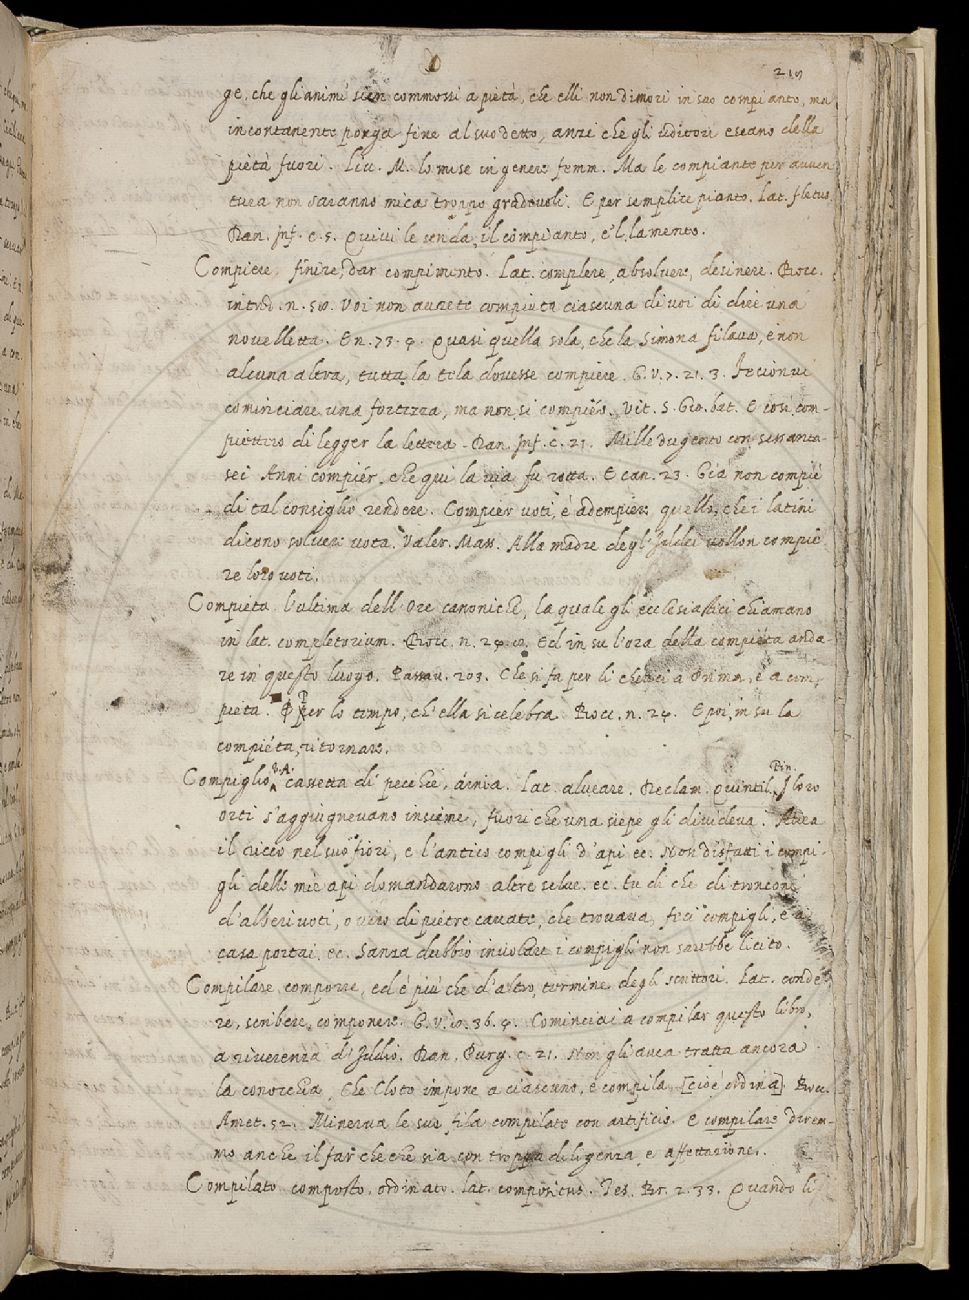 219
ge, che gli animi sien commossi a pietà, che elli non dimori in suo compianto, ma
incontanente ponga fine al suo detto, anzi che gli uditori escano della
pietà fuori. Liv. M. lo mise in genere femm. Ma le compiante per avven
tura non saranno mica troppo gradevoli. E per semplice pianto. Lat. fletus.
Dan. Inf. c. 5. Quivi le strida, il compianto, e'l lamento.
Compiere, finire, dar compimento. Lat. complere, absolvere, desinere. Bocc.
introd. n. 50. Voi non avrete compiuta ciascuna di voi di dire una
novelletta. E n. 73. 9. Quasi quella sola, che la Simona filava, e non
alcuna altra, tutta la tela dovesse compiere. G. V. 7. 21. 3. Fecionvi
cominciare una fortezza, ma non si compiéo. Vit. S. Gio. bat. E così com-
piettero di legger la lettera. Dan. Inf. c. 21. Mille dugento con sessanta-
sei Anni compiér, che qui la via fu rotta. E can. 23. Già non compié
di tal consiglio rendere. Compier voti, è adempier, quello, che i latini
dicono solvere vota. Valer. Mass. Alla madre degl'Iddei vollon compie
re loro voti.
Compieta l'ultima dell'Ore canoniche, la quale gli ecclesiastici chiamano
in lat. completorium. Bocc. n. 24. 10. Ed in su l'ora della compieta anda
re in questo luogo. Passav. 203. Che si fa per li cherici a Prima, e a com-
pieta. Per lo tempo, ch'ella si celebra Bocc. n. 24. E poi, in su la
compiéta, ritornare.
Compiglio V.A. cassetta di pecchie, árnia. Lat. alveare. Declam. Quintil. Pin. I loro
orti s'aggiugnevano insieme, fuori che una siepe gli divideva. Avea
il ricco nel suo fiori, e l'antico compigli d'api ec. Non disfatti i compi-
gli delle mie api domandarono altre selve. ec. tu di che di tronconi
d'alberi voti, o vero di pietre cavate, che trovava, feci compigli, e a
casa portai. ec. Sanza dubbio involare i compigli non sarebbe licito.
Compilare, comporre, ed è più che d'altro, termine degli scrittori. Lat. conde
re, scribere, componere. G. V. 10. 36. 4. Cominciai a compilar questo libro,
a riverenza d'Iddio. Dan. Purg. c. 21. Non gli avea tratta ancora
la conocchia, Che Cloto impone a ciascuno, e compila [cioè ordina] Bocc.
Amet. 52. Minerva le sue fila compilate con artificio. E compilare direm-
mo anche il far che che sia con troppa diligenza, e affettazione.
Compilato composto, ordinato. lat. compositus. Tes. Br. 2. 33. Quando li